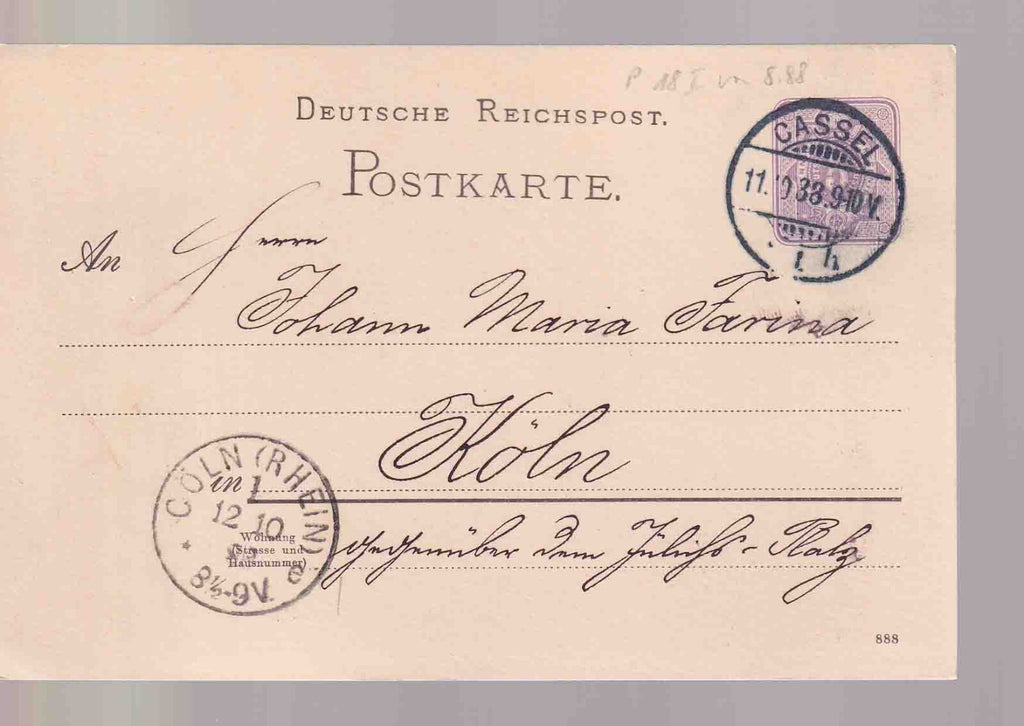 P 18 I von 8.88
DEUTSCHE REICHSPOST.
POSTKARTE.
CASSEL
11. 10 88. 9-10 V.
1 h
An Herrn
Johann Maria Farina
Köln
in
CÖLN (RHEIN)
1
12 10
8½-9V.
Wohnung
(Strasse und
Hausnummer)
gegenüber dem Jülichs-Platz
888